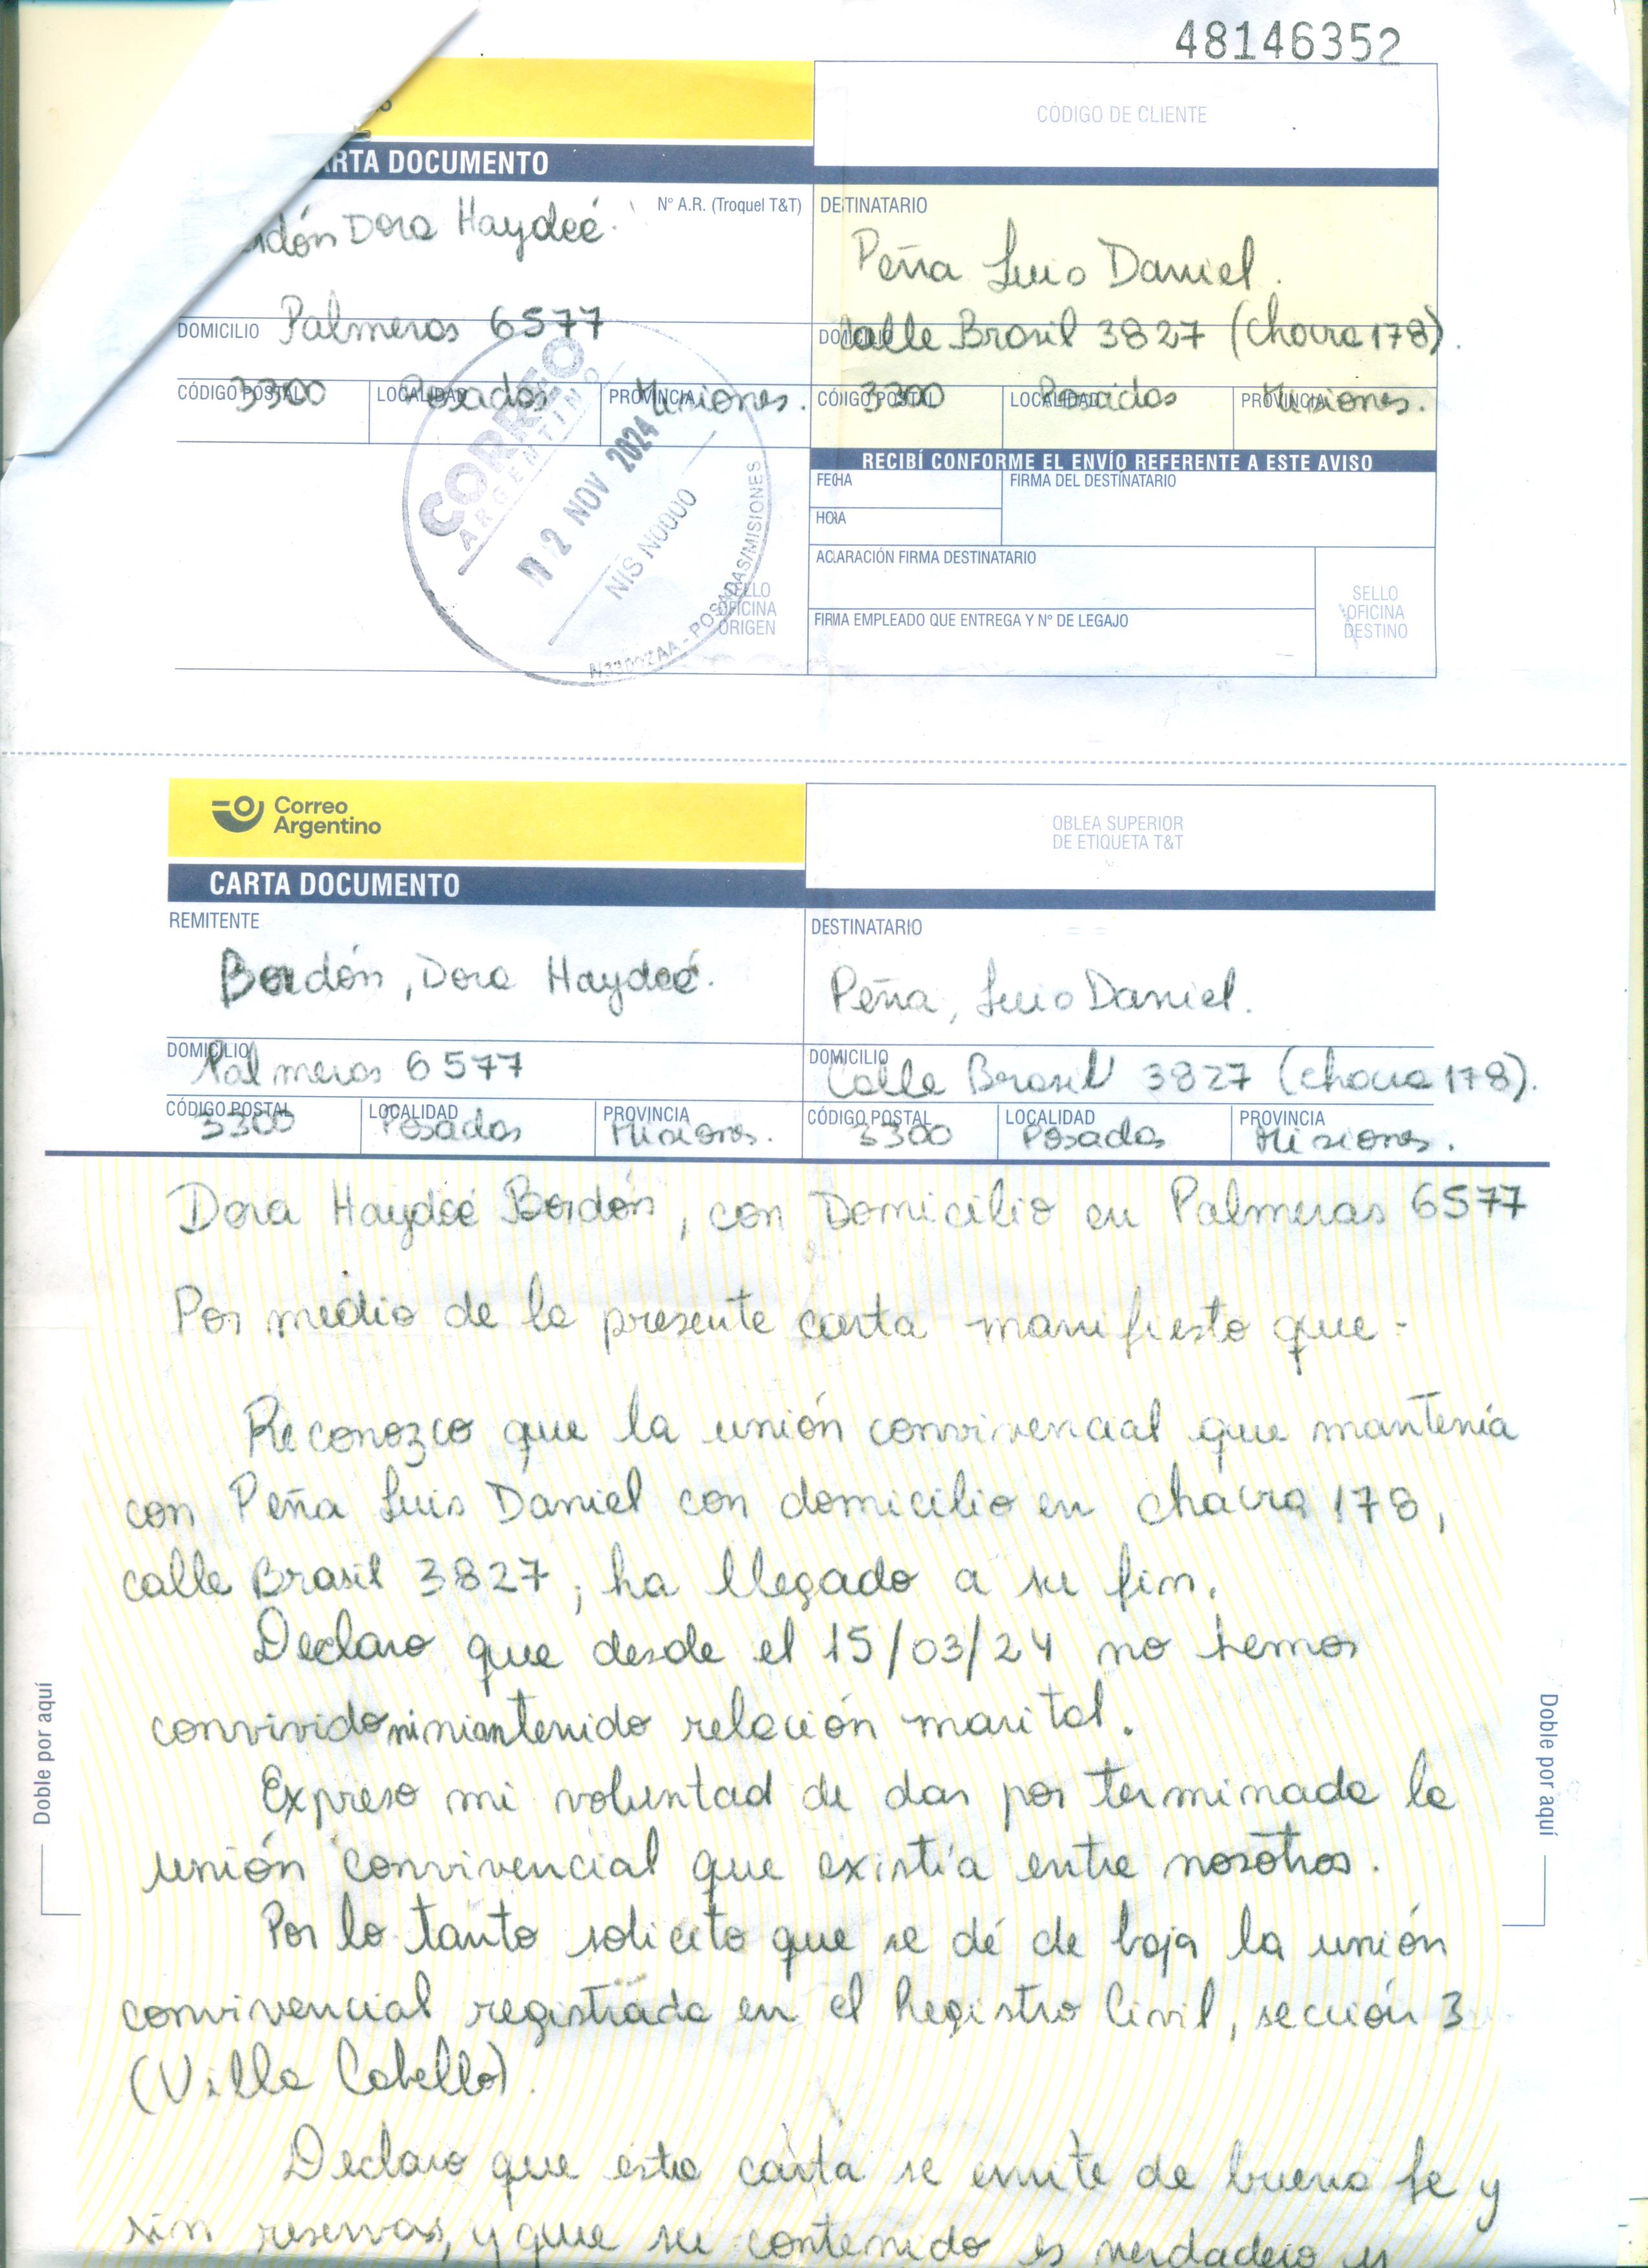 48146352
CÓDIGO DE CLIENTE
RTA DOCUMENTO
Nº A.R. (Troquel T&T)
dón Dora Haydeé.
DETINATARIO
Peña Luis Daniel.
DOMICILIO Palmeras 6577
DOMICILIO Calle Brasil 3827 (Chacra 178).
CÓDIGO POSTAL 3300 LOCALIDAD Posadas PROVINCIA Misiones.
CÓIGO POSTAL 3300 LOCALIDAD Posadas PROVINCIA Misiones.
RECIBÍ CONFORME EL ENVÍO REFERENTE A ESTE AVISO
FECHA
FIRMA DEL DESTINATARIO
HORA
ACLARACIÓN FIRMA DESTINATARIO
FIRMA EMPLEADO QUE ENTREGA Y Nº DE LEGAJO
SELLO
OFICINA
DESTINO
CORREO
ARGENTINO
12 NOV 2024
NIS N0000
POSADAS/MISIONES
SELLO
OFICINA
ORIGEN
Correo
Argentino
OBLEA SUPERIOR
DE ETIQUETA T&T
CARTA DOCUMENTO
REMITENTE
Bordón, Dora Haydeé.
DESTINATARIO
Peña, Luis Daniel.
DOMICILIO Palmeras 6577
DOMICILIO Calle Brasil 3827 (chacra 178).
CÓDIGO POSTAL 3300 LOCALIDAD Posadas PROVINCIA Misiones.
CÓDIGO POSTAL 3300 LOCALIDAD Posadas PROVINCIA Misiones.
Dora Haydeé Bordón, con Domicilio en Palmeras 6577
Por medio de la presente carta manifiesto que-
Reconozco que la unión convivencial que mantenía
con Peña Luis Daniel con domicilio en chacra 178,
calle Brasil 3827; ha llegado a su fin.
Declaro que desde el 15/03/24 no hemos
convivido ni mantenido relación marital.
Expreso mi voluntad de dar por terminada la
unión convivencial que existía entre nosotros.
Por lo tanto solicito que se dé de baja la unión
convivencial registrada en el Registro Civil, sección 3
(Villa Cabello).
Declaro que esta carta se emite de buena fe y
sin reservas, y que su contenido es verdadero y
Doble por aquí
Doble por aquí